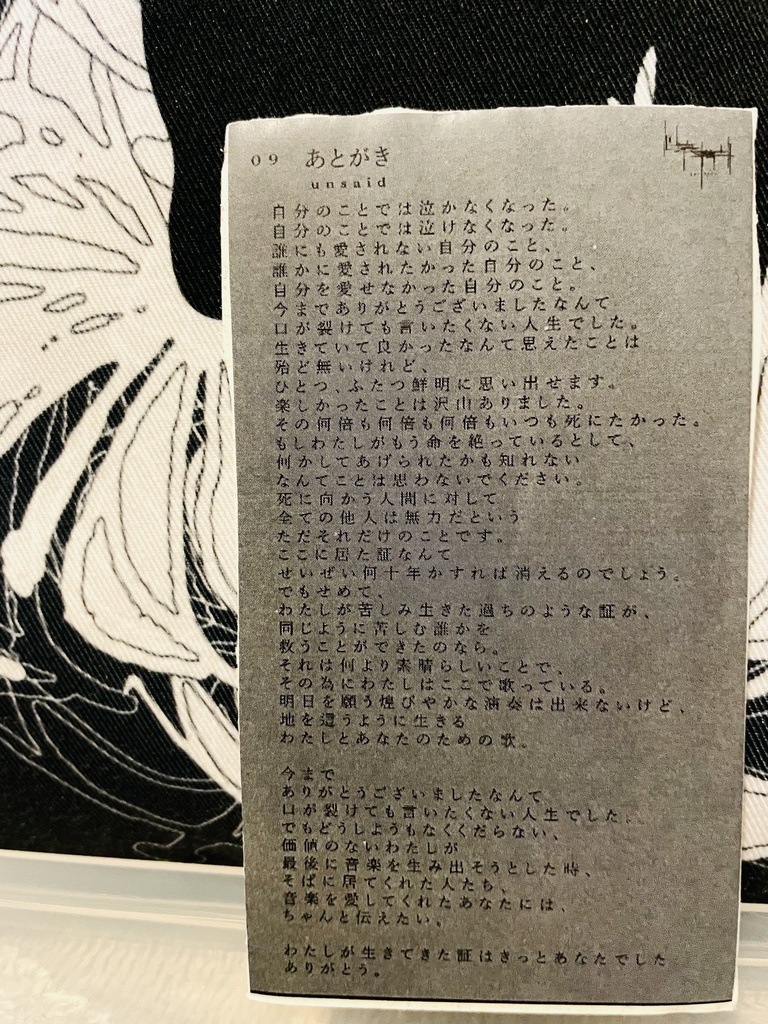 09 あとがき
unsaid
自分のことでは泣かなくなった。
自分のことでは泣けなくなった。
誰にも愛されない自分のこと、
誰かに愛されたかった自分のこと、
自分を愛せなかった自分のこと。
今までありがとうございましたなんて
口が裂けても言いたくない人生でした。
生きていて良かったなんて思えたことは
殆ど無いけれど、
ひとつ、ふたつ鮮明に思い出せます。
楽しかったことは沢山ありました。
その何倍も何倍も何倍もいつも死にたかった。
もしわたしがもう命を絶っているとして、
何かしてあげられたかも知れない
なんてことは思わないでください。
死に向かう人間に対して
全ての他人は無力だという
ただそれだけのことです。
ここに居た証なんて
せいぜい何十年かすれば消えるのでしょう。
でもせめて、
わたしが苦しみ生きた過ちのような証が、
同じように苦しむ誰かを
救うことができたのなら。
それは何より素晴らしいことで、
その為にわたしはここで歌っている。
明日を願う煌びやかな演奏は出来ないけど、
地を這うように生きる
わたしとあなたのための歌。
今まで
ありがとうございましたなんて
口が裂けても言いたくない人生でした。
でもどうしようもなくくだらない、
価値のないわたしが
最後に音楽を生み出そうとした時、
そばに居てくれた人たち、
音楽を愛してくれたあなたには、
ちゃんと伝えたい。
わたしが生きてきた証はきっとあなたでした
ありがとう。